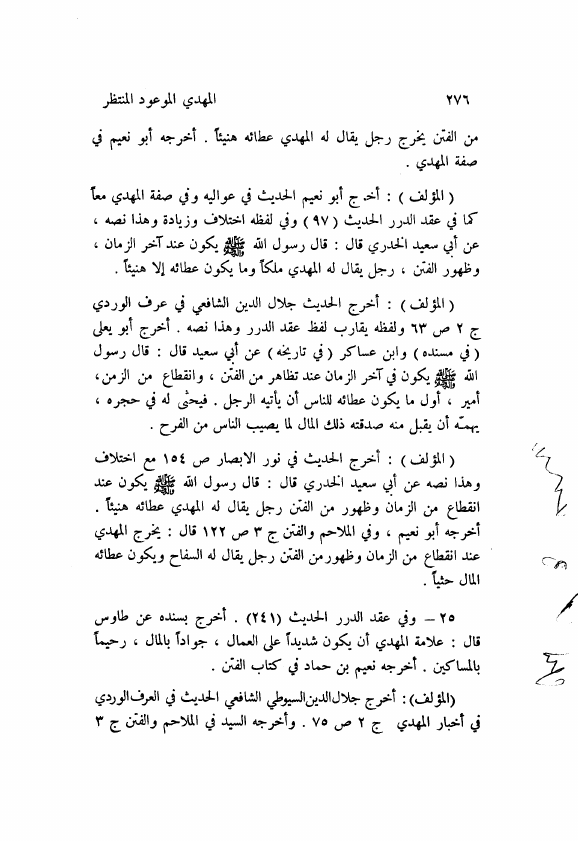 ٢٧٦ المهدي الموعود المنتظر
من الفتن يخرج رجل يقال له المهدي عطائه هنيئاً . أخرجه أبو نعيم في
صفة المهدي .
( المؤلف ) : أخرج أبو نعيم الحديث في عواليه وفي صفة المهدي معاً
كما في عقد الدرر الحديث ( ٩٧ ) وفي لفظه اختلاف وزيادة وهذا نصه ،
عن أبي سعيد الخدري قال : قال رسول الله ﷺ يكون عند آخر الزمان ،
وظهور الفتن ، رجل يقال له المهدي ملكاً وما يكون عطائه إلا هنيئاً .
( المؤلف ) : أخرج الحديث جلال الدين الشافعي في عرف الوردي
ج ٢ ص ٦٣ ولفظه يقارب لفظ عقد الدرر وهذا نصه . أخرج أبو يعلى
( في مسنده ) وابن عساكر ( في تاريخه ) عن أبي سعيد قال : قال رسول
الله ﷺ يكون في آخر الزمان عند تظاهر من الفتن ، وانقطاع من الزمن ،
أمير ، أول ما يكون عطائه للناس أن يأتيه الرجل . فيحثى له في حجره ،
يهمّه أن يقبل منه صدقته ذلك المال لما يصيب الناس من الفرح .
( المؤلف ) : أخرج الحديث في نور الابصار ص ١٥٤ مع اختلاف
وهذا نصه عن أبي سعيد الخدري قال : قال رسول الله ﷺ يكون عند
انقطاع من الزمان وظهور من الفتن رجل يقال له المهدي عطائه هنيئاً .
أخرجه أبو نعيم ، وفي الملاحم والفتن ج ٣ ص ١٢٢ قال : يخرج المهدي
عند انقطاع من الزمان وظهور من الفتن رجل يقال له السفاح ويكون عطائه
المال حثياً .
٢٥ – وفي عقد الدرر الحديث (٢٤١) . أخرج بسنده عن طاوس
قال : علامة المهدي أن يكون شديداً على العمال ، جواداً بالمال ، رحيماً
بالمساكين . أخرجه نعيم بن حماد في كتاب الفتن .
(المؤلف) : أخرج جلال الدين السيوطي الشافعي الحديث في العرف الوردي
في أخبار المهدي ج ٢ ص ٧٥ . وأخرجه السيد في الملاحم والفتن ج ٣